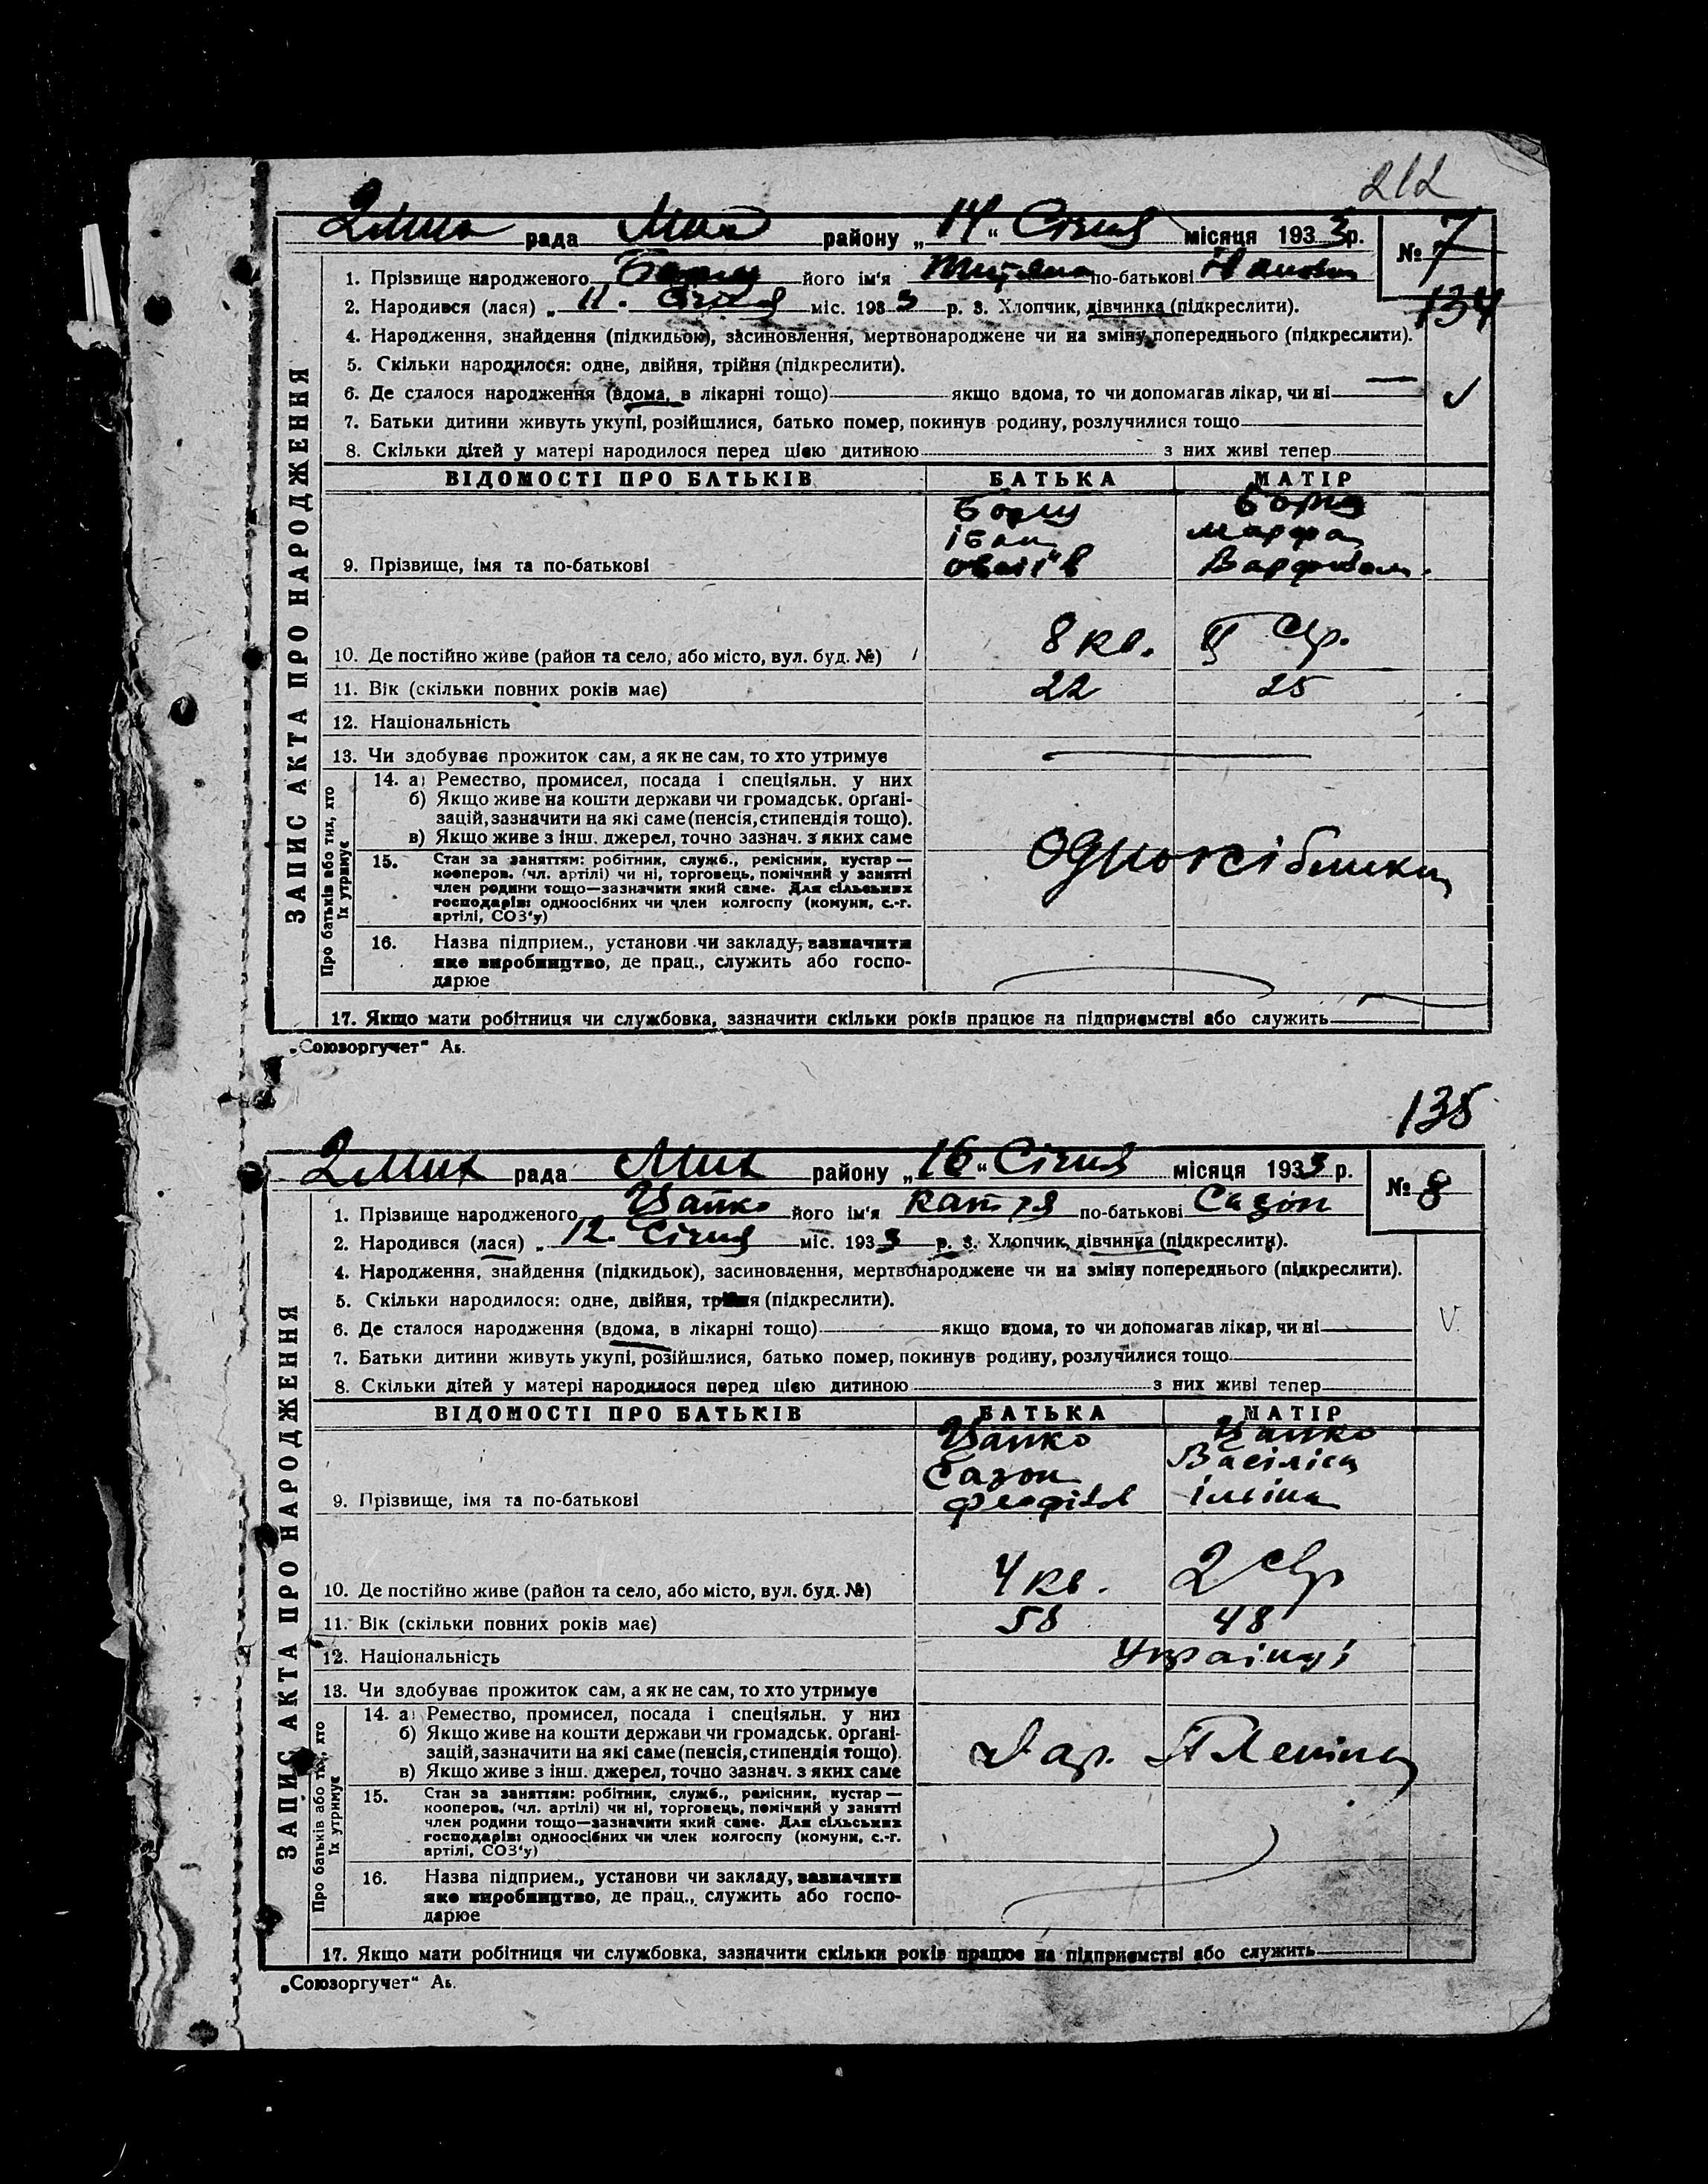 212
рада району „14“ Січня місяця 1933 р. № 7
134
1. Прізвище народженого його ім'я по-батькові
2. Народився (лася) „11. Січня міс. 1933 р. 3. Хлопчик, дівчинка (підкреслити).
4. Народження, знайдення (підкидьок), засиновлення, мертвонароджене чи на зміну попереднього (підкреслити).
5. Скільки народилося: одне, двійня, трійня (підкреслити).
6. Де сталося народження (вдома, в лікарні тощо) якщо вдома, то чи допомагав лікар, чи ні
7. Батьки дитини живуть укупі, розійшлися, батько помер, покинув родину, розлучилися тощо
8. Скільки дітей у матері народилося перед цією дитиною з них живі тепер
ЗАПИС АКТА ПРО НАРОДЖЕННЯ
ВІДОМОСТІ ПРО БАТЬКІВ БАТЬКА МАТІР
іван марфа
9. Прізвище, імя та по-батькові
10. Де постійно живе (район та село, або місто, вул. буд. №) 8 кв.
11. Вік (скільки повних років має) 22 25
12. Національність
13. Чи здобуває прожиток сам, а як не сам, то хто утримує
Про батьків або тих, хто
їх утримує
14. а) Ремество, промисел, посада і спеціяльн. у них
б) Якщо живе на кошти держави чи громадськ. орґані-
зацій, зазначити на які саме (пенсія, стипендія тощо).
в) Якщо живе з інш. джерел, точно зазнач. з яких саме
15. Стан за заняттям: робітник, служб., ремісник, кустар —
кооперов. (чл. артілі) чи ні, торговець, помічний у занятті
член родини тощо—зазначити який саме. Для сільських
господарів: одноосібних чи член колгоспу (комуни, с.-г.
артілі, СОЗ'у)
16. Назва підприєм., установи чи закладу, зазначити
яке виробництво, де прац., служить або госпо-
дарює
17. Якщо мати робітниця чи службовка, зазначити скільки років працює на підприємстві або служить
„Союзоргучет“ Аь.
135
рада району „16“ Січня місяця 1933 р. № 8
1. Прізвище народженого Цапко його ім'я Катря по-батькові Сазон
2. Народився (лася) „12. Січня міс. 1933 р. 3. Хлопчик, дівчинка (підкреслити).
4. Народження, знайдення (підкидьок), засиновлення, мертвонароджене чи на зміну попереднього (підкреслити).
5. Скільки народилося: одне, двійня, трійня (підкреслити).
6. Де сталося народження (вдома, в лікарні тощо) якщо вдома, то чи допомагав лікар, чи ні
7. Батьки дитини живуть укупі, розійшлися, батько помер, покинув родину, розлучилися тощо
8. Скільки дітей у матері народилося перед цією дитиною з них живі тепер
ЗАПИС АКТА ПРО НАРОДЖЕННЯ
ВІДОМОСТІ ПРО БАТЬКІВ БАТЬКА МАТІР
Цапко Цапко
Сазон Васіліса
9. Прізвище, імя та по-батькові ільіна
10. Де постійно живе (район та село, або місто, вул. буд. №) 4 кв.
11. Вік (скільки повних років має) 58 48
12. Національність Українці
13. Чи здобуває прожиток сам, а як не сам, то хто утримує
Про батьків або тих, хто
їх утримує
14. а) Ремество, промисел, посада і спеціяльн. у них
б) Якщо живе на кошти держави чи громадськ. орґані-
зацій, зазначити на які саме (пенсія, стипендія тощо).
в) Якщо живе з інш. джерел, точно зазнач. з яких саме
Леніна
15. Стан за заняттям: робітник, служб., ремісник, кустар —
кооперов. (чл. артілі) чи ні, торговець, помічний у занятті
член родини тощо—зазначити який саме. Для сільських
господарів: одноосібних чи член колгоспу (комуни, с.-г.
артілі, СОЗ'у)
16. Назва підприєм., установи чи закладу, зазначити
яке виробництво, де прац., служить або госпо-
дарює
17. Якщо мати робітниця чи службовка, зазначити скільки років працює на підприємстві або служить
„Союзоргучет“ Аь.